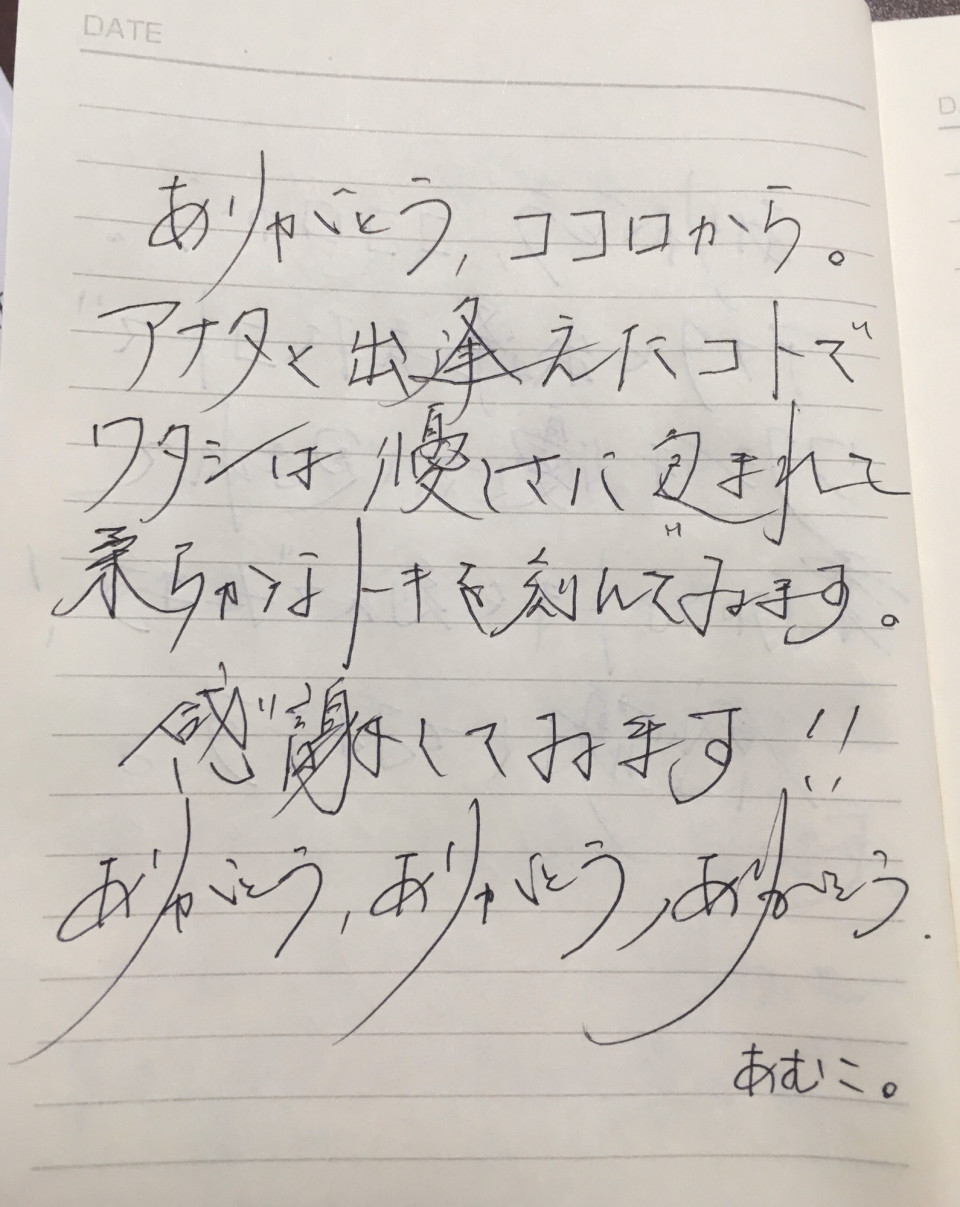 DATE
ありがとう, ココロから。
アナタと出逢えたコトで
ワタシは優しさに包まれて
柔らかなトキを刻んでゐます。
感謝してゐます!!
ありがとう, ありがとう, ありがとう.
あむこ。